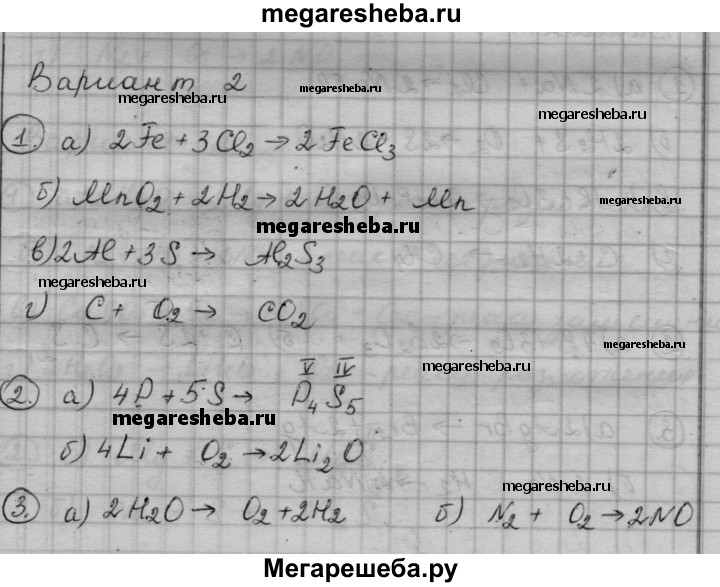 megaresheba.ru
Вариант 2
megaresheba.ru
megaresheba.ru
1. а) 2Fe + 3Cl₂ → 2FeCl₃
б) MnO₂ + 2H₂ → 2H₂O + Mn
megaresheba.ru
megaresheba.ru
в) 2Al + 3S → Al₂S₃
megaresheba.ru
г) C + O₂ → CO₂
megaresheba.ru
V IV
2. а) 4P + 5S → P₄S₅
megaresheba.ru
б) 4Li + O₂ → 2Li₂O
megaresheba.ru
3. а) 2H₂O → O₂ + 2H₂ б) N₂ + O₂ → 2NO
Мегарешеба.ру